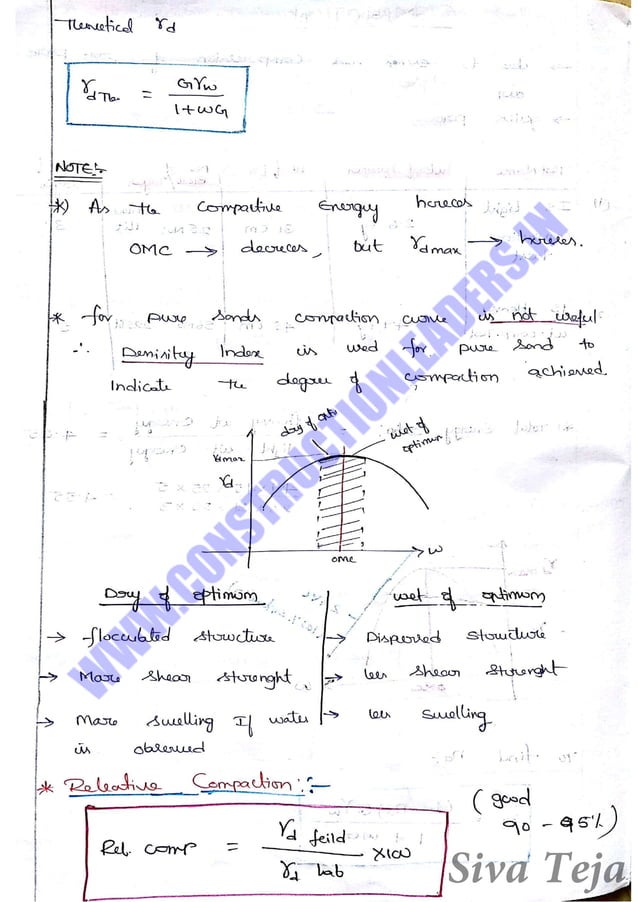 Theoretical γd
γdTh. = Gγw / 1+wG
NOTE:-
*) As the compactive Energy Increces
OMC → decreces, but γdmax → Increces.
* for pure sands compaction curve is not useful
∴ Denisitey Index is used for pure sand to
Indicate the degree of compaction achieved.
dry of
wet of
optimum
γdmax
γd
OMC
w
Dry of optimum
→ flocculated structure
→ More shear strenght
→ More swelling If water
is observed
wet of optimum
→ Dispersed structure
→ less shear strenght
→ less swelling
* Releative Compaction:-
Rel. comp = γd feild / γd Lab × 100
(good
90 - 95%)
WWW.CONSTRUCTIONLEADERS.IN
Siva Teja